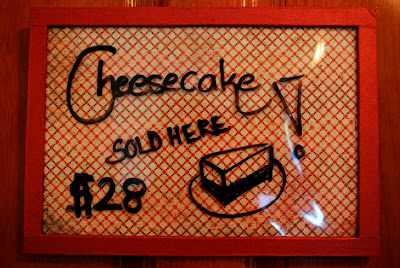 Cheesecake!
SOLD HERE
$28